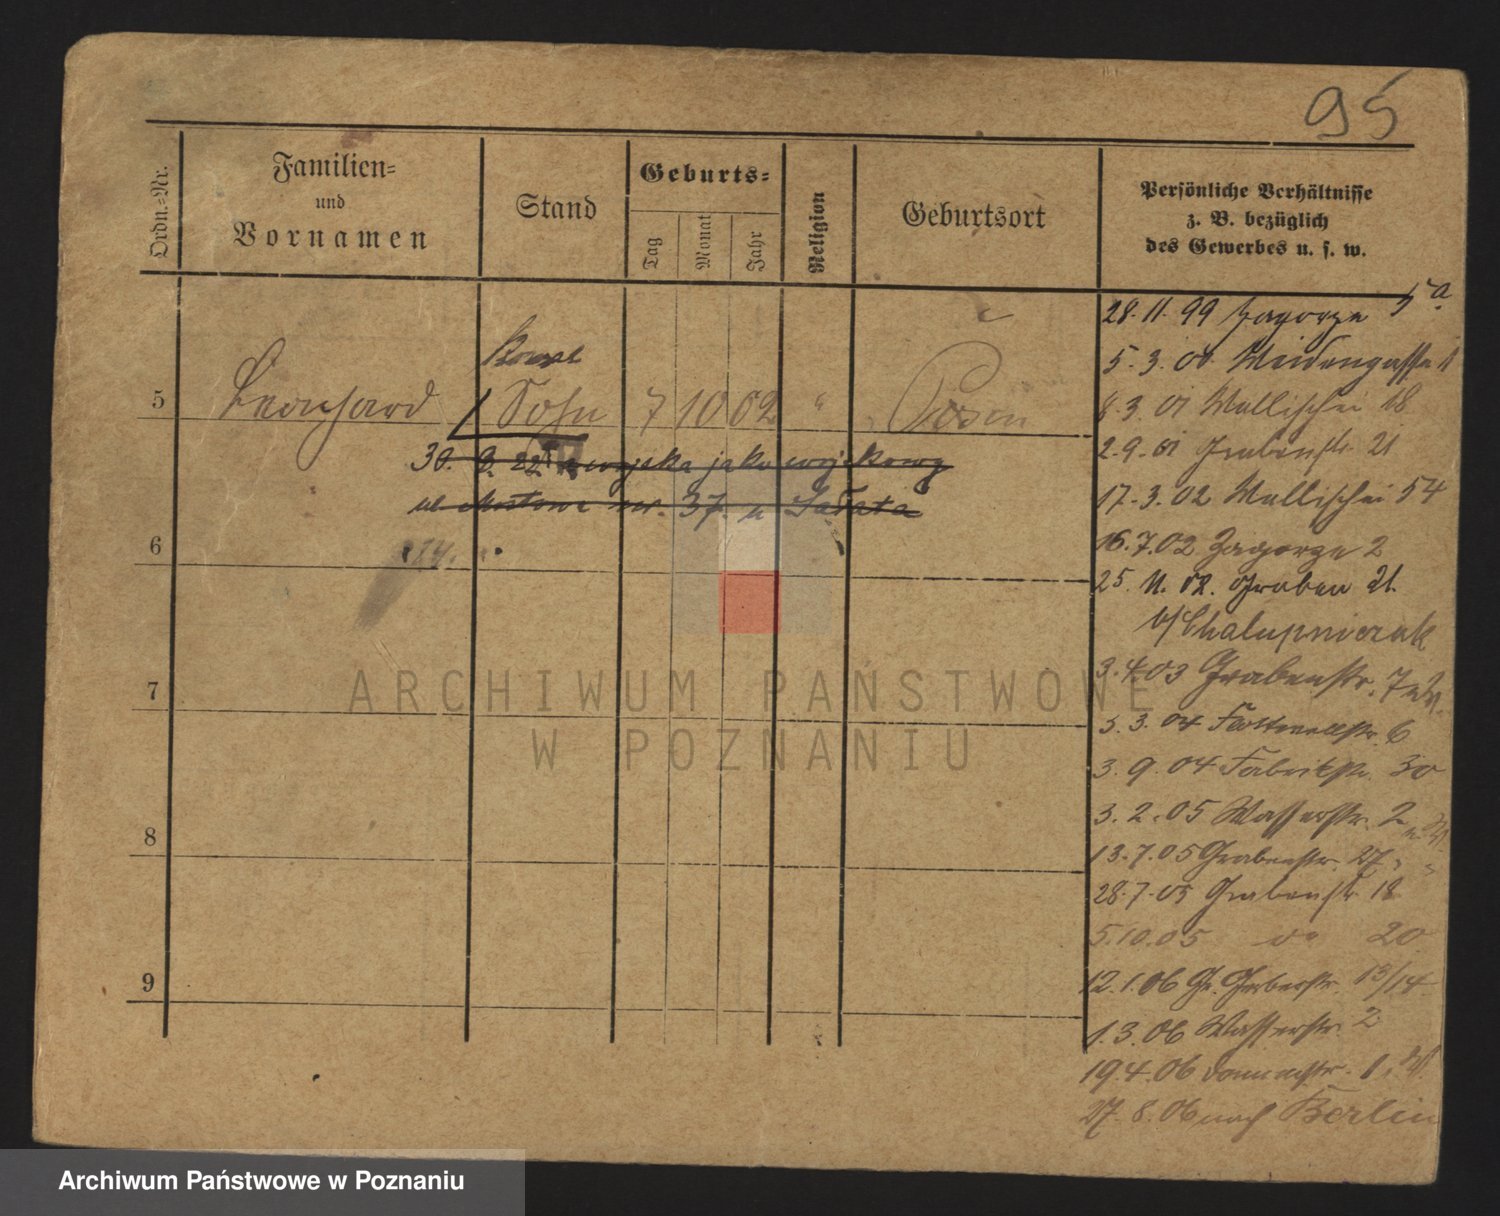 95
Ordn.-Nr.
Familien-
und
Vornamen
Stand
Geburts-
Tag
Monat
Jahr
Religion
Geburtsort
Persönliche Verhältnisse
z. B. bezüglich
des Gewerbes u. s. w.
5
Leonhard
Sohn
7 10 02 "
Posen
30. 9. 22 z wojska jako wojskowy
ul Mostowa nr. 37. u Sałata
6
7
8
9
28. 11. 99 Zagorze 5a
5. 3. 01 Weidengasse
8. 3. 01 Wallischei 18
2. 9. 01 Grabenstr. 21
17. 3. 02 Wallischei 54
16. 7. 02 Zagorze 2
25. 11. 02. Graben 21.
b/Chalupniczak
3. 4. 03 Grabenstr. 7
5. 3. 04 Fabrikstr. 30
3. 2. 05 Wasserstr. 2
13. 7. 05 Grabenstr. 27
28. 7. 05 Grabenstr. 18
5. 10. 05 do 20
12. 1. 06 Gr. Gerberstr. 13/14
1. 3. 06 Wasserstr. 2
19. 4. 06
27. 8. 06 nach Berlin
ARCHIWUM PAŃSTWOWE
W POZNANIU
Archiwum Państwowe w Poznaniu